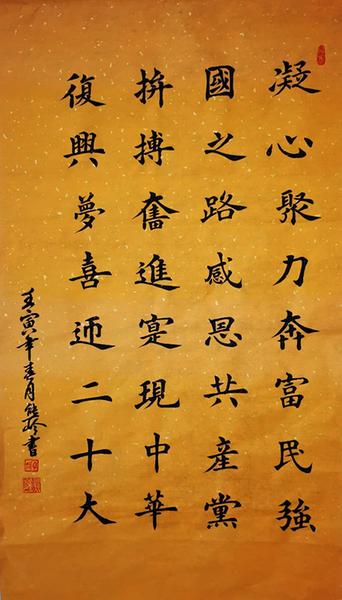 凝心聚力奔富民強
國之路感恩共產黨
拚搏奮進寔現中華
復興夢喜迎二十大
壬寅年春月書